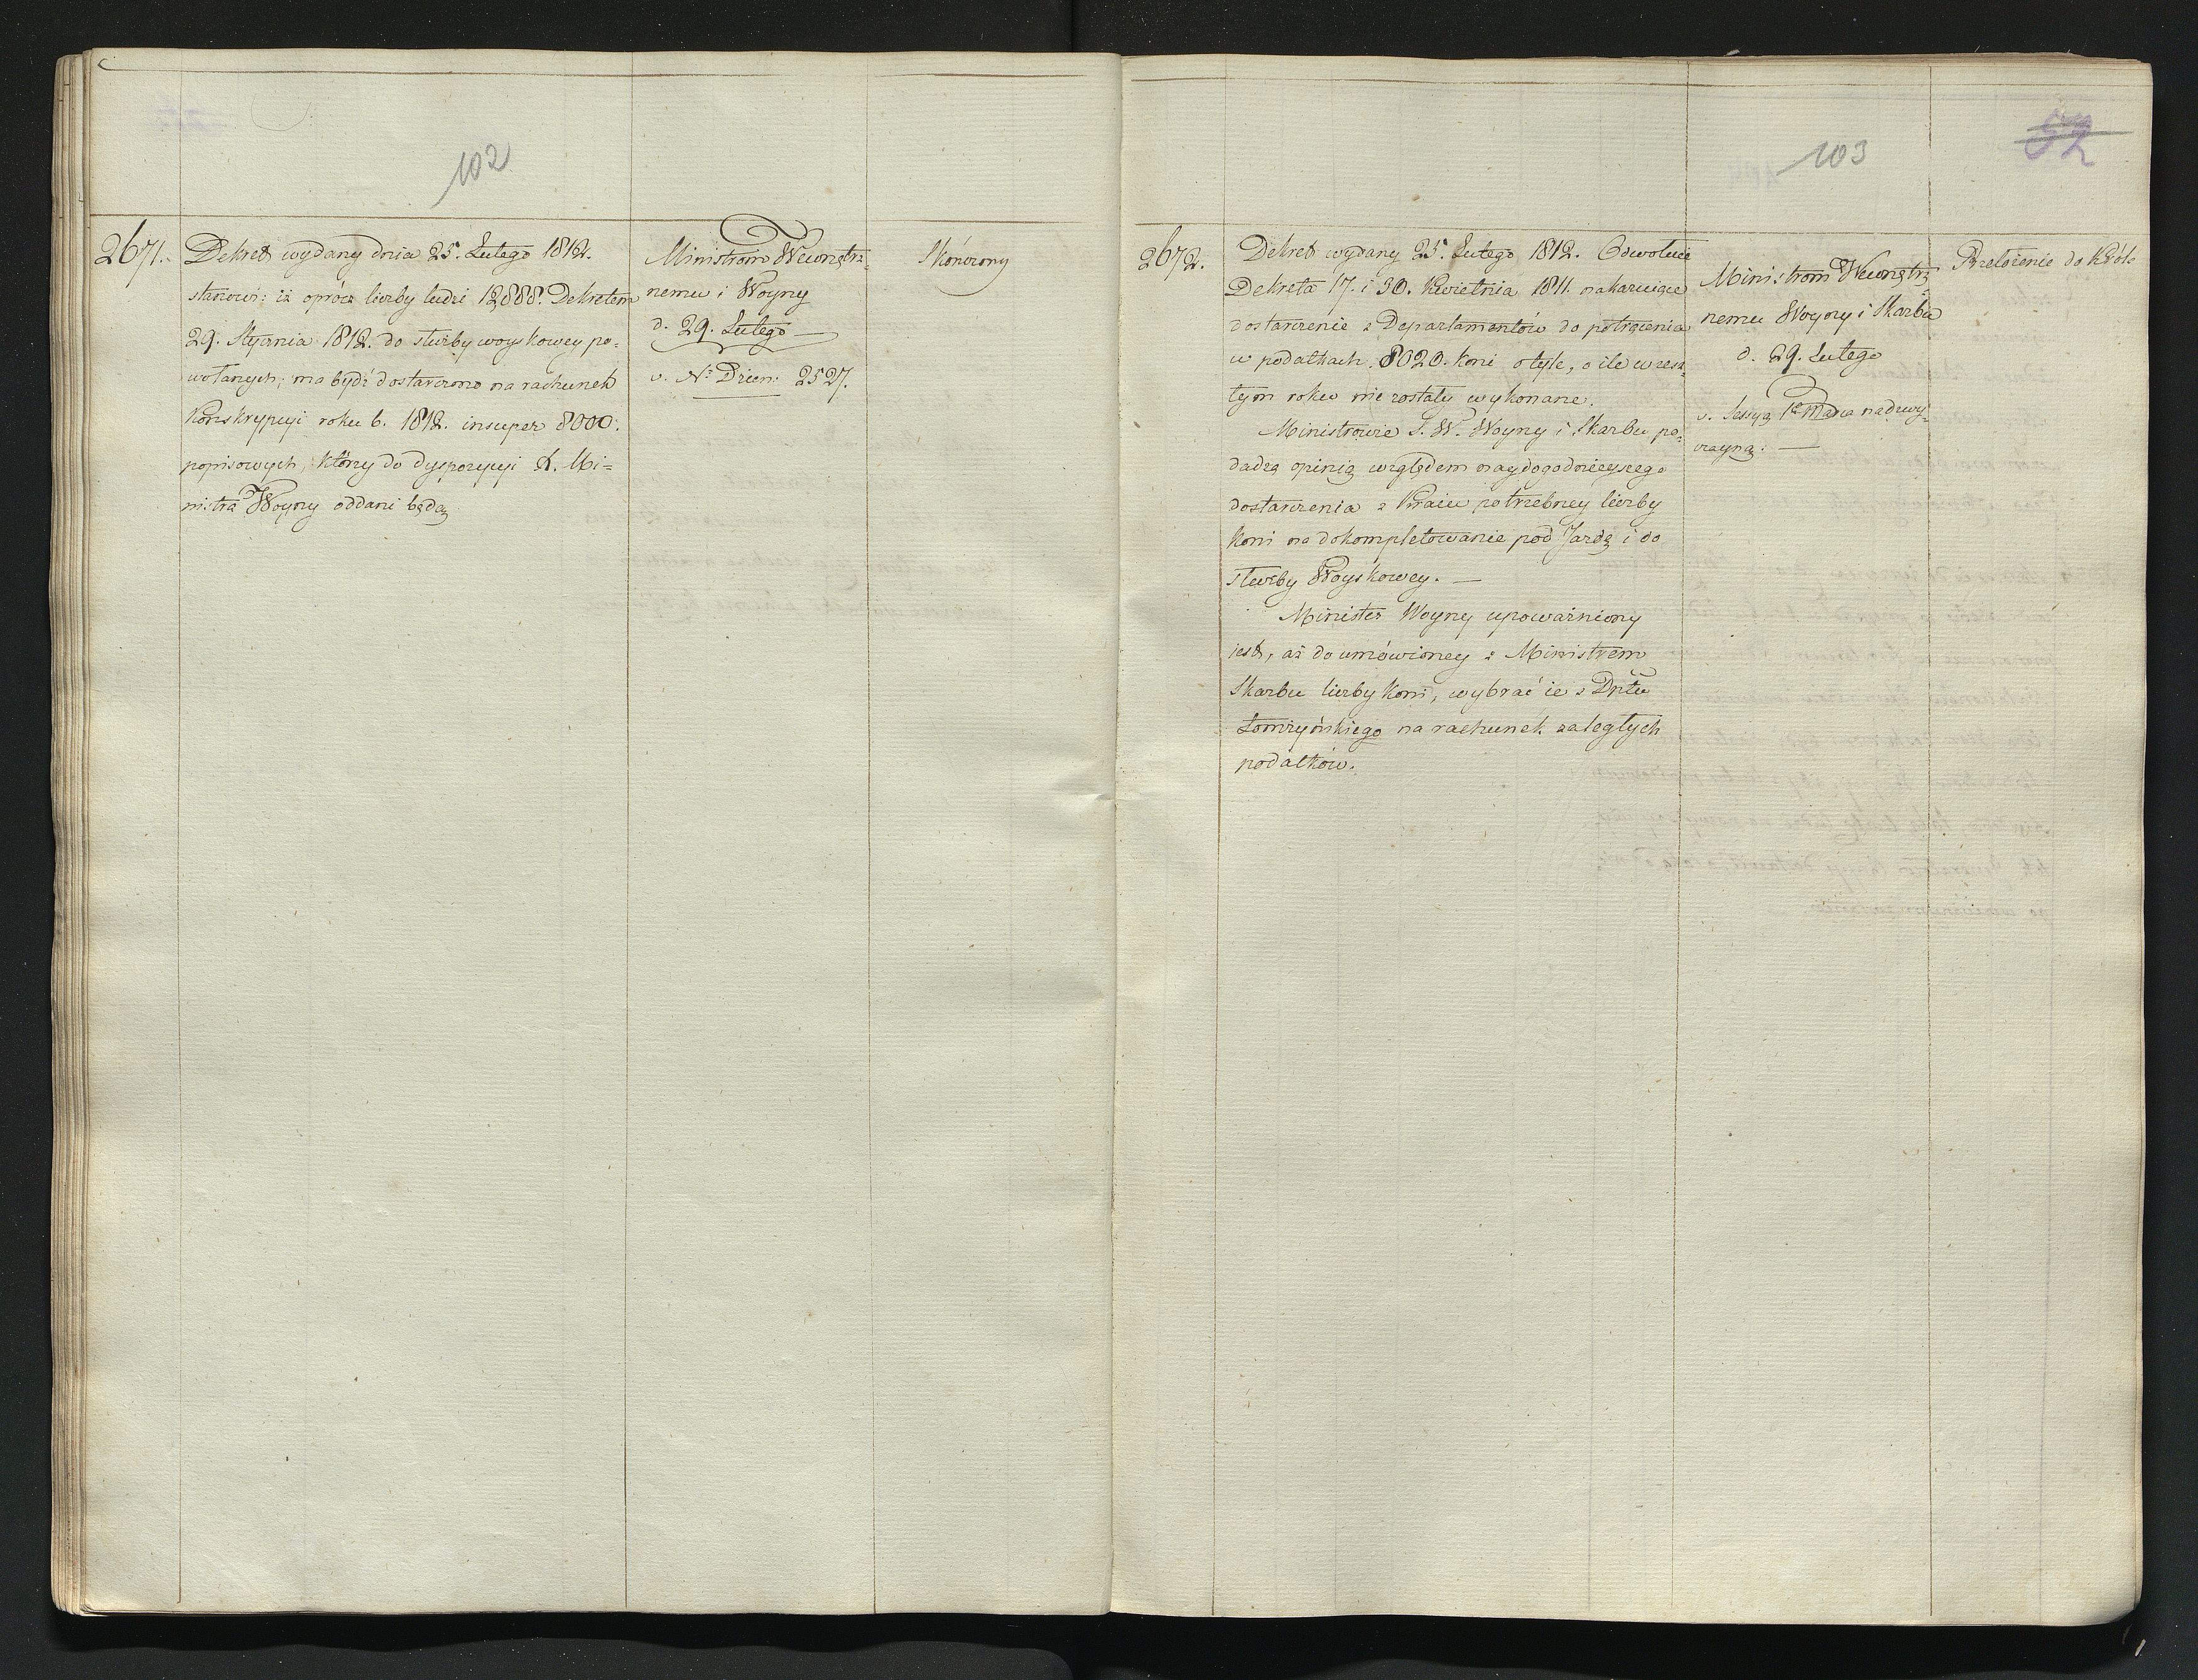 102
2671.
Dekret wydany dnia 25. Lutego 1812.
stanowi: iż oprócz liczby ludzi 12,888. Dekretem
29. Stycznia 1812. do służby woyskowey po-
wołanych; ma bydź dostarczono na rachunek
Konskrypcyi roku b. 1812. insuper 8000.
popisowych, którzy do dyspozycyi X. Mi-
nistra Woyny oddani będą
Ministrom Wewnętrz-
nemu i Woyny
d. 29. Lutego
v. Nº Dzien: 2527.
Skończony
103
52
2672.
Dekret wydany 25. Lutego 1812. Odwołuie
Dekreta 17. i 30. Kwietnia 1811. nakazuiące
dostarczenie z Departamentów do potrącenia
w podatkach 8020. koni o tyle, o ile w zesz-
łym roku nie zostały wykonane.
Ministrowie S. W. Woyny i Skarbu po-
dadzą opinią względem naydogodnieyszego
dostarczenia z Kraiu potrzebney liczby
koni na dokompletowanie pod Jazdę i do
służby Woyskowey. —
Minister Woyny upoważniony
iest, aż do umówioney z Ministrem
Skarbu liczby koni, wybrać ie z Dpttu
Łomżyńskiego na rachunek zaległych
podatków.
Ministrom Wewnętrz-
nemu Woyny i Skarbu
d. 29. Lutego
v. Sessyą 1º Marca nadzwy-
czayną. —
Przełożenie do Króla